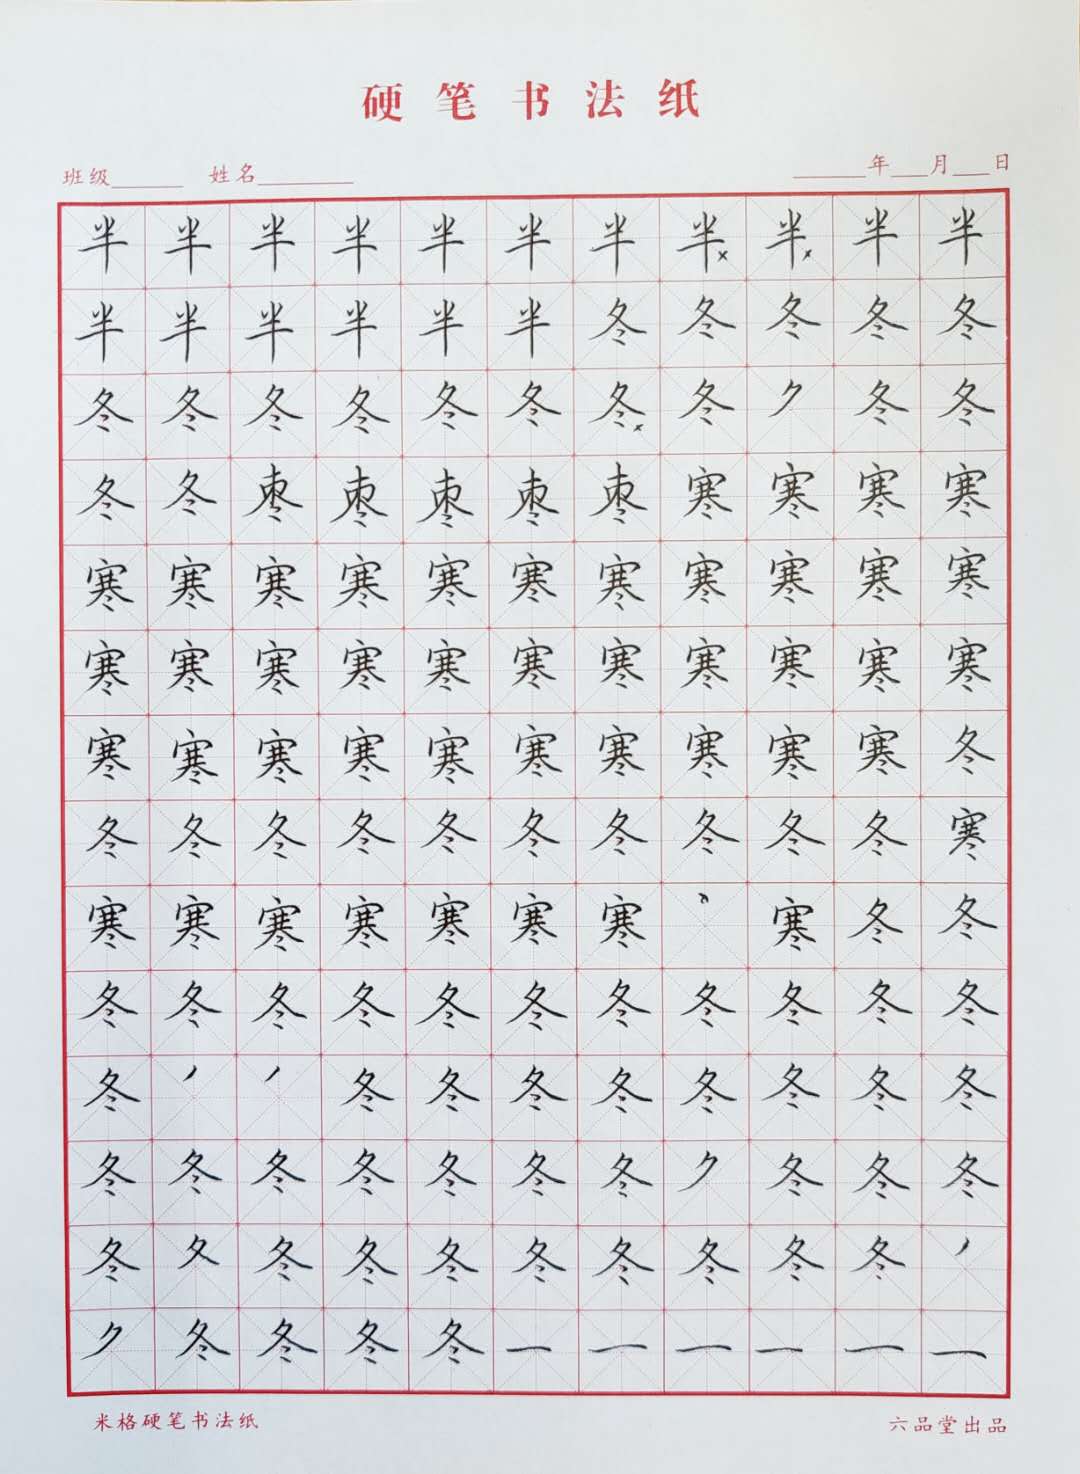 硬笔书法纸
班级 姓名 年 月 日
半半半半半半半半半半半
半半半半半半冬冬冬冬冬
冬冬冬冬冬冬冬冬冬冬
冬冬枣枣枣枣枣寒寒寒寒
寒寒寒寒寒寒寒寒寒寒寒
寒寒寒寒寒寒寒寒寒寒寒
寒寒寒寒寒寒寒寒寒寒冬
冬冬冬冬冬冬冬冬冬冬寒
寒寒寒寒寒寒寒寒冬冬
冬冬冬冬冬冬冬冬冬冬冬
冬冬冬冬冬冬冬冬冬
冬冬冬冬冬冬冬冬冬冬
冬夂冬冬冬冬冬冬冬冬
冬冬冬冬一一一一一一
米格硬笔书法纸 六品堂出品